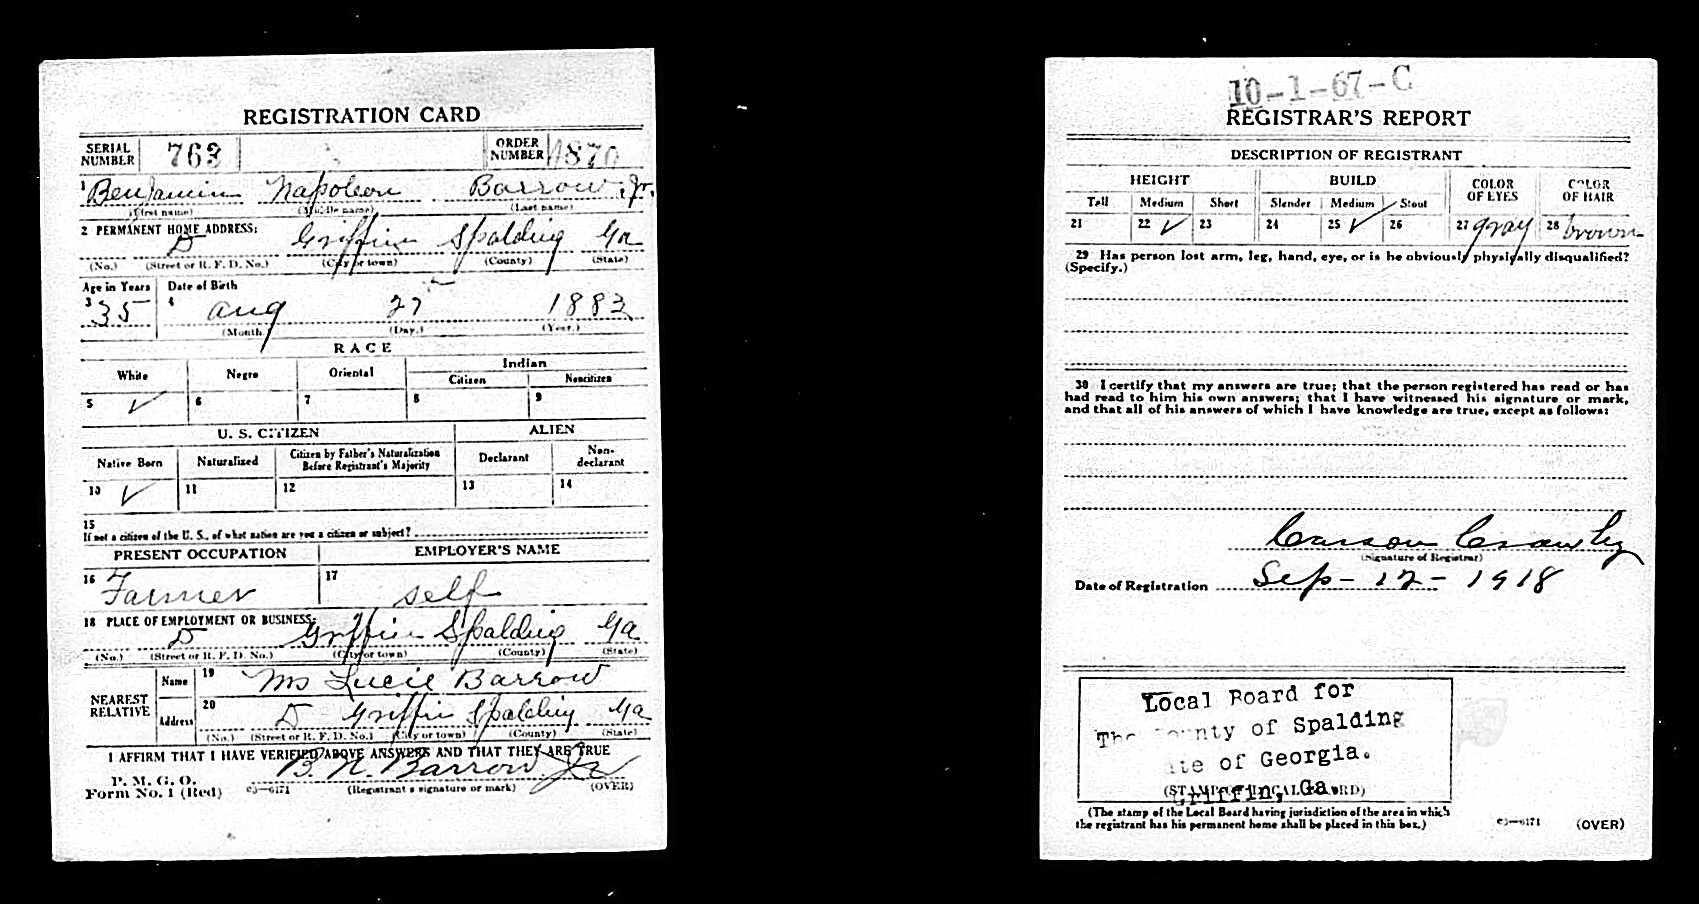 REGISTRATION CARD
SERIAL NUMBER 763 ORDER NUMBER 1870
1 Benjamin Napoleon Barrow Jr.
(First name) (Middle name) (Last name)
2 PERMANENT HOME ADDRESS:
D Griffin Spalding Ga
(No.) (Street or R. F. D. No.) (City or town) (County) (State)
Age in Years Date of Birth
3 35 4 Aug 27 1883
(Month.) (Day.) (Year.)
RACE
White Negro Oriental Indian
Citizen Noncitizen
5 ✓ 6 7 8 9
U. S. CITIZEN ALIEN
Native Born Naturalized Citizen by Father's Naturalization Before Registrant's Majority Declarant Non-declarant
10 ✓ 11 12 13 14
15
If not a citizen of the U. S., of what nation are you a citizen or subject?
PRESENT OCCUPATION EMPLOYER'S NAME
16 Farmer 17 self
18 PLACE OF EMPLOYMENT OR BUSINESS:
D Griffin Spalding Ga
(No.) (Street or R. F. D. No.) (City or town) (County) (State)
NEAREST RELATIVE
Name 19 Mrs Lucie Barrow
Address 20 D Griffin Spalding Ga
(No.) (Street or R. F. D. No.) (City or town) (County) (State)
I AFFIRM THAT I HAVE VERIFIED ABOVE ANSWERS AND THAT THEY ARE TRUE
B. N. Barrow Jr
P. M. G. O.
Form No. 1 (Red) 03—6171 (Registrant's signature or mark) (OVER)
10-1-67-C
REGISTRAR'S REPORT
DESCRIPTION OF REGISTRANT
HEIGHT BUILD COLOR OF EYES COLOR OF HAIR
Tall Medium Short Slender Medium Stout
21 22 ✓ 23 24 25 ✓ 26 27 gray 28 brown
29 Has person lost arm, leg, hand, eye, or is he obviously physically disqualified?
(Specify.)
30 I certify that my answers are true; that the person registered has read or has
had read to him his own answers; that I have witnessed his signature or mark,
and that all of his answers of which I have knowledge are true, except as follows:
Carson Crawley
(Signature of Registrar)
Date of Registration Sep - 12 - 1918
Local Board for
The County of Spalding
State of Georgia.
Griffin, Ga.
(STAMP OF LOCAL BOARD)
(The stamp of the Local Board having jurisdiction of the area in which
the registrant has his permanent home shall be placed in this box.)
03—6171 (OVER)